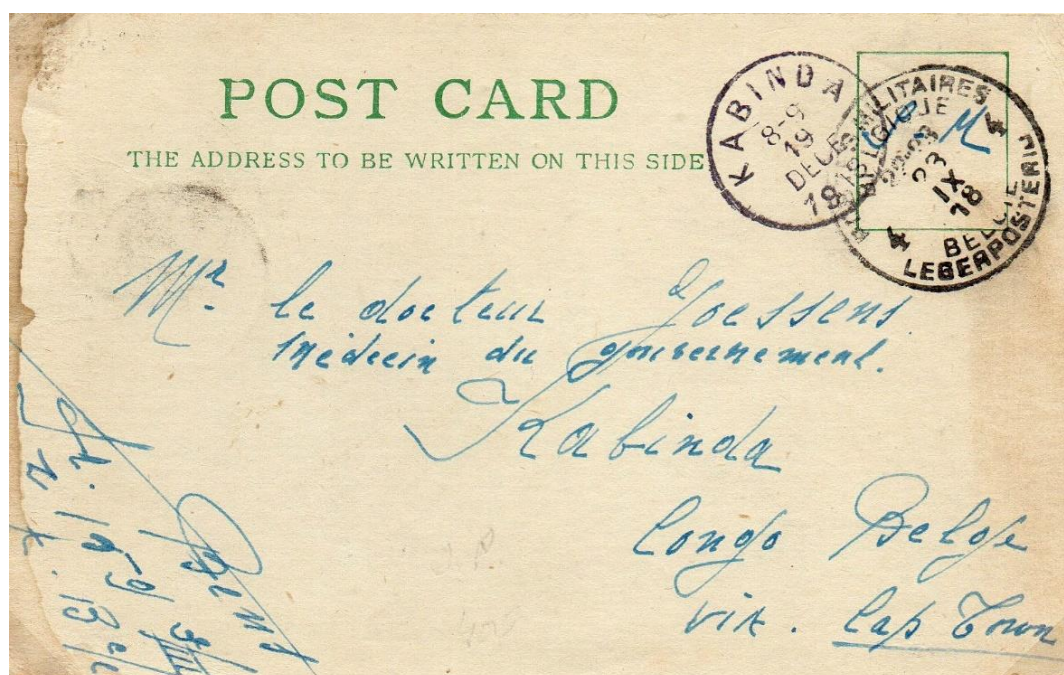 POST CARD
THE ADDRESS TO BE WRITTEN ON THIS SIDE
KABINDA
8-9
19
DECE
18
MILITAIRES
BELGIQUE
4
23
IX
18
4
BELGIE
LEGERPOSTERIJ
S.M
Mr le docteur Goessens
Médecin du gouvernement.
Kabinda
Congo Belge
via. Cap Town